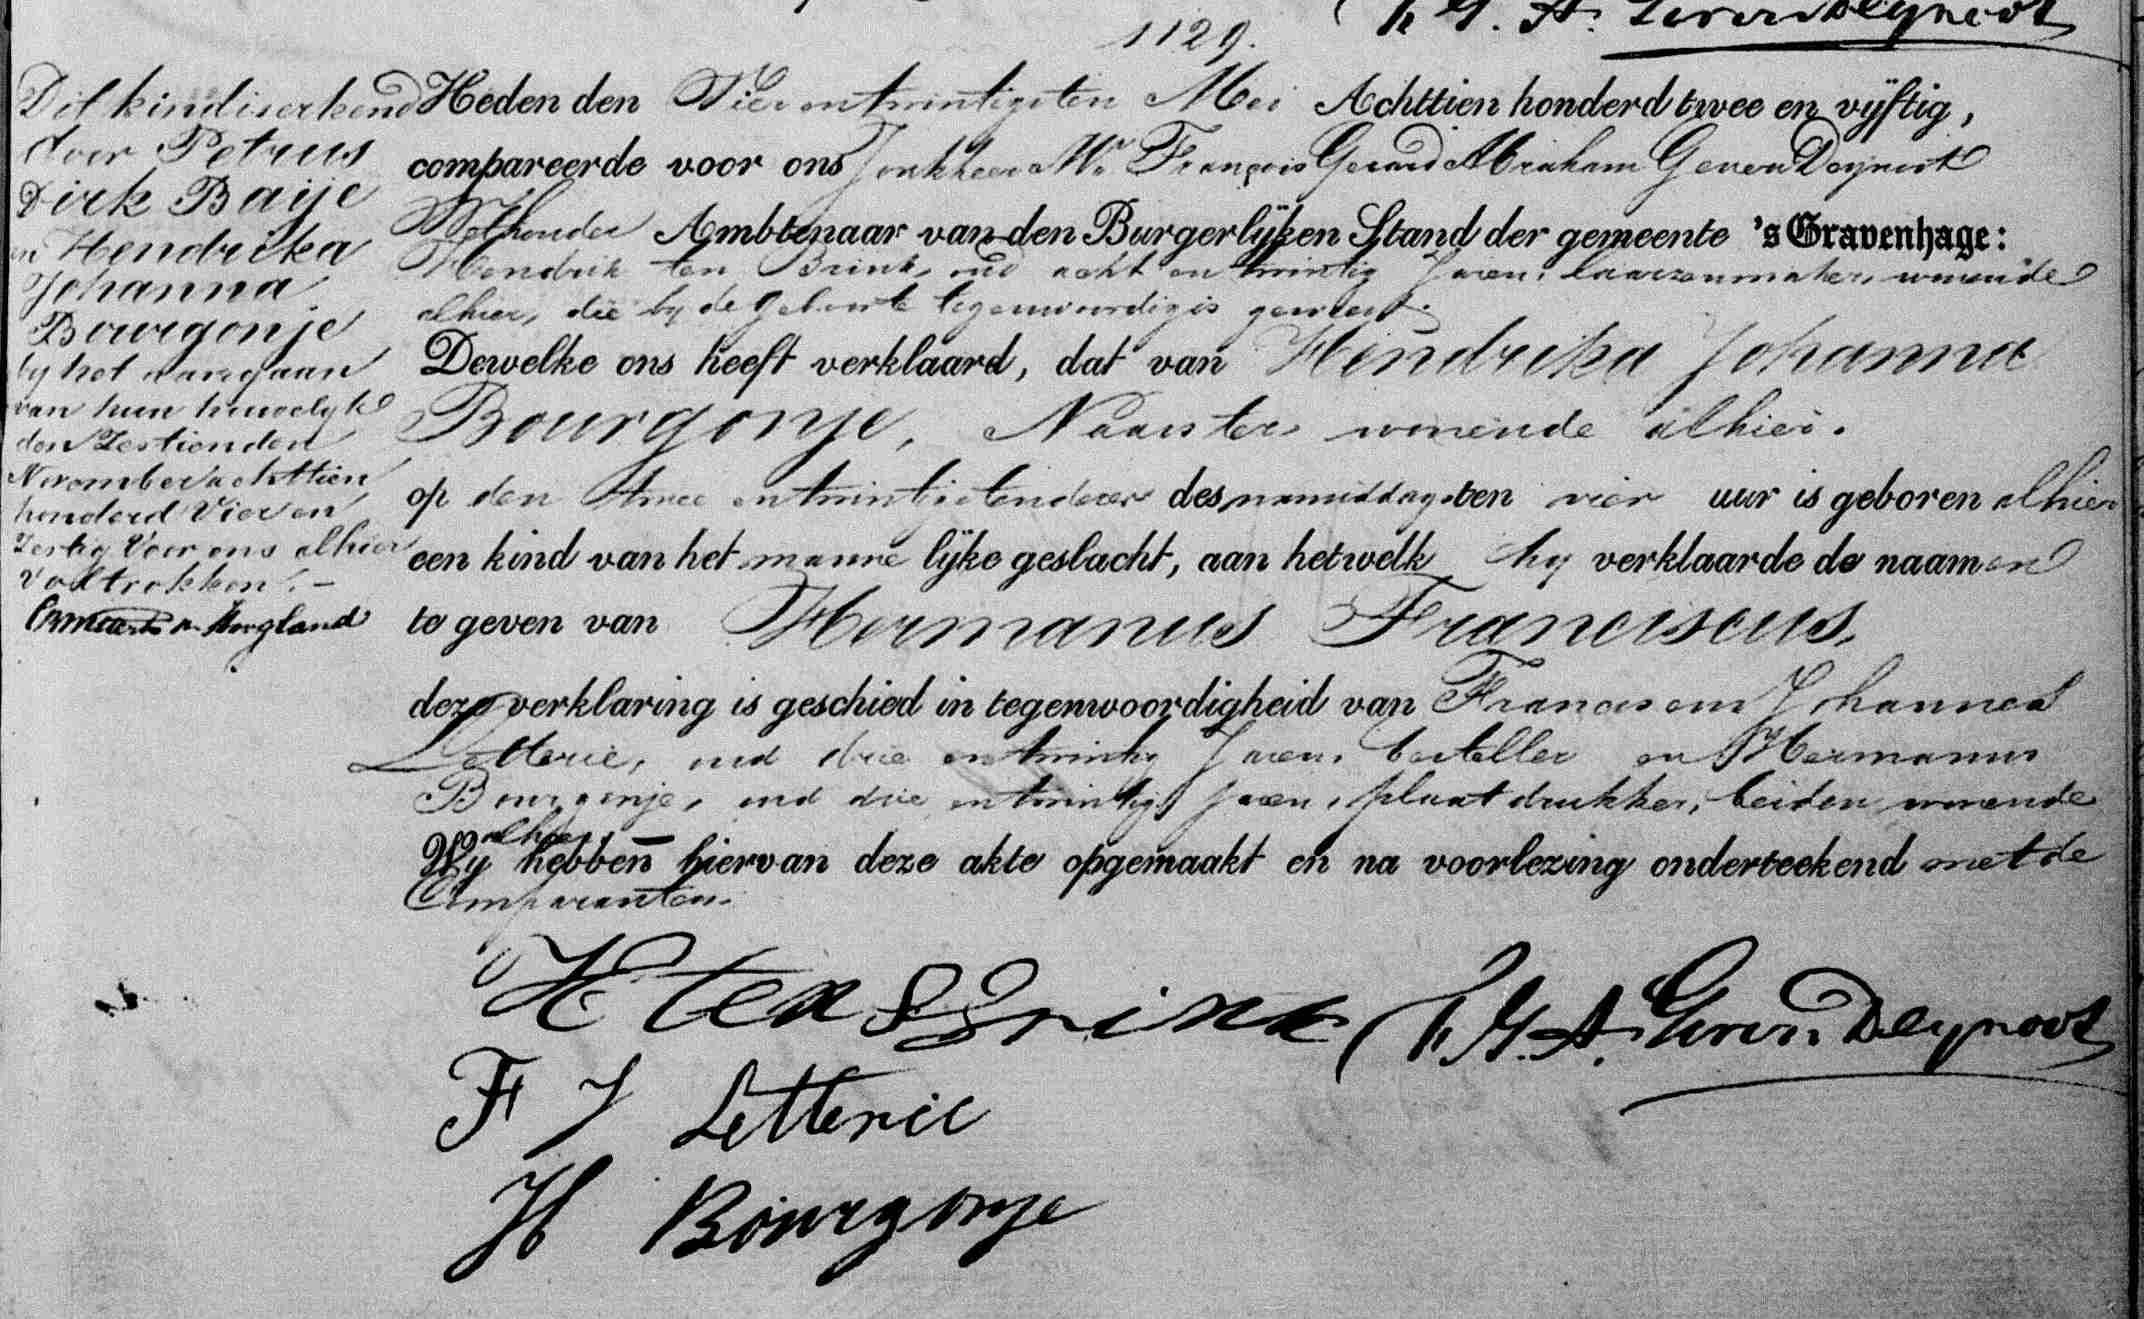 1129.
Dit kind is erkend
door Petrus
Dirk Baije
en Hendrika
Johanna
Bourgonje
by het aangaan
van hun huwelyk
den Zestienden
November achttien
honderd Vier en
Zestig Voor ons alhier
Voltrokken. –
Heden den Vier en twintigsten Mei Achttien honderd twee en vijftig,
compareerde voor ons Jonkheer Mr. François Gerard Abraham Gevers Deynoot
Wethouder Ambtenaar van den Burgerlijken Stand der gemeente 's Gravenhage:
Hendrik ten Brink, oud acht en twintig Jaren, laarzenmaker, wonende
alhier, die by de geboorte tegenwoordig is geweest.
Dewelke ons heeft verklaard, dat van Hendrika Johanna
Bourgonje, Naaister wonende alhier.
op den twee en twintigsten dezer des namiddags ten vier uur is geboren alhier
een kind van het mannelijke geslacht, aan hetwelk hy verklaarde de naamen
te geven van Hermanus Franciscus.
deze verklaring is geschied in tegenwoordigheid van Franciscus Johannes
Letterie, oud drie en twintig Jaren, besteller en Hermanus
Bourgonje, oud drie en twintig Jaren, plaatdrukker, beiden wonende
alhier
Wij hebben hiervan deze akte opgemaakt en na voorlezing onderteekend met de
Comparanten.
H ten Brink F. G. A. Gevers Deynoot
F J Letterie
H Bourgonje